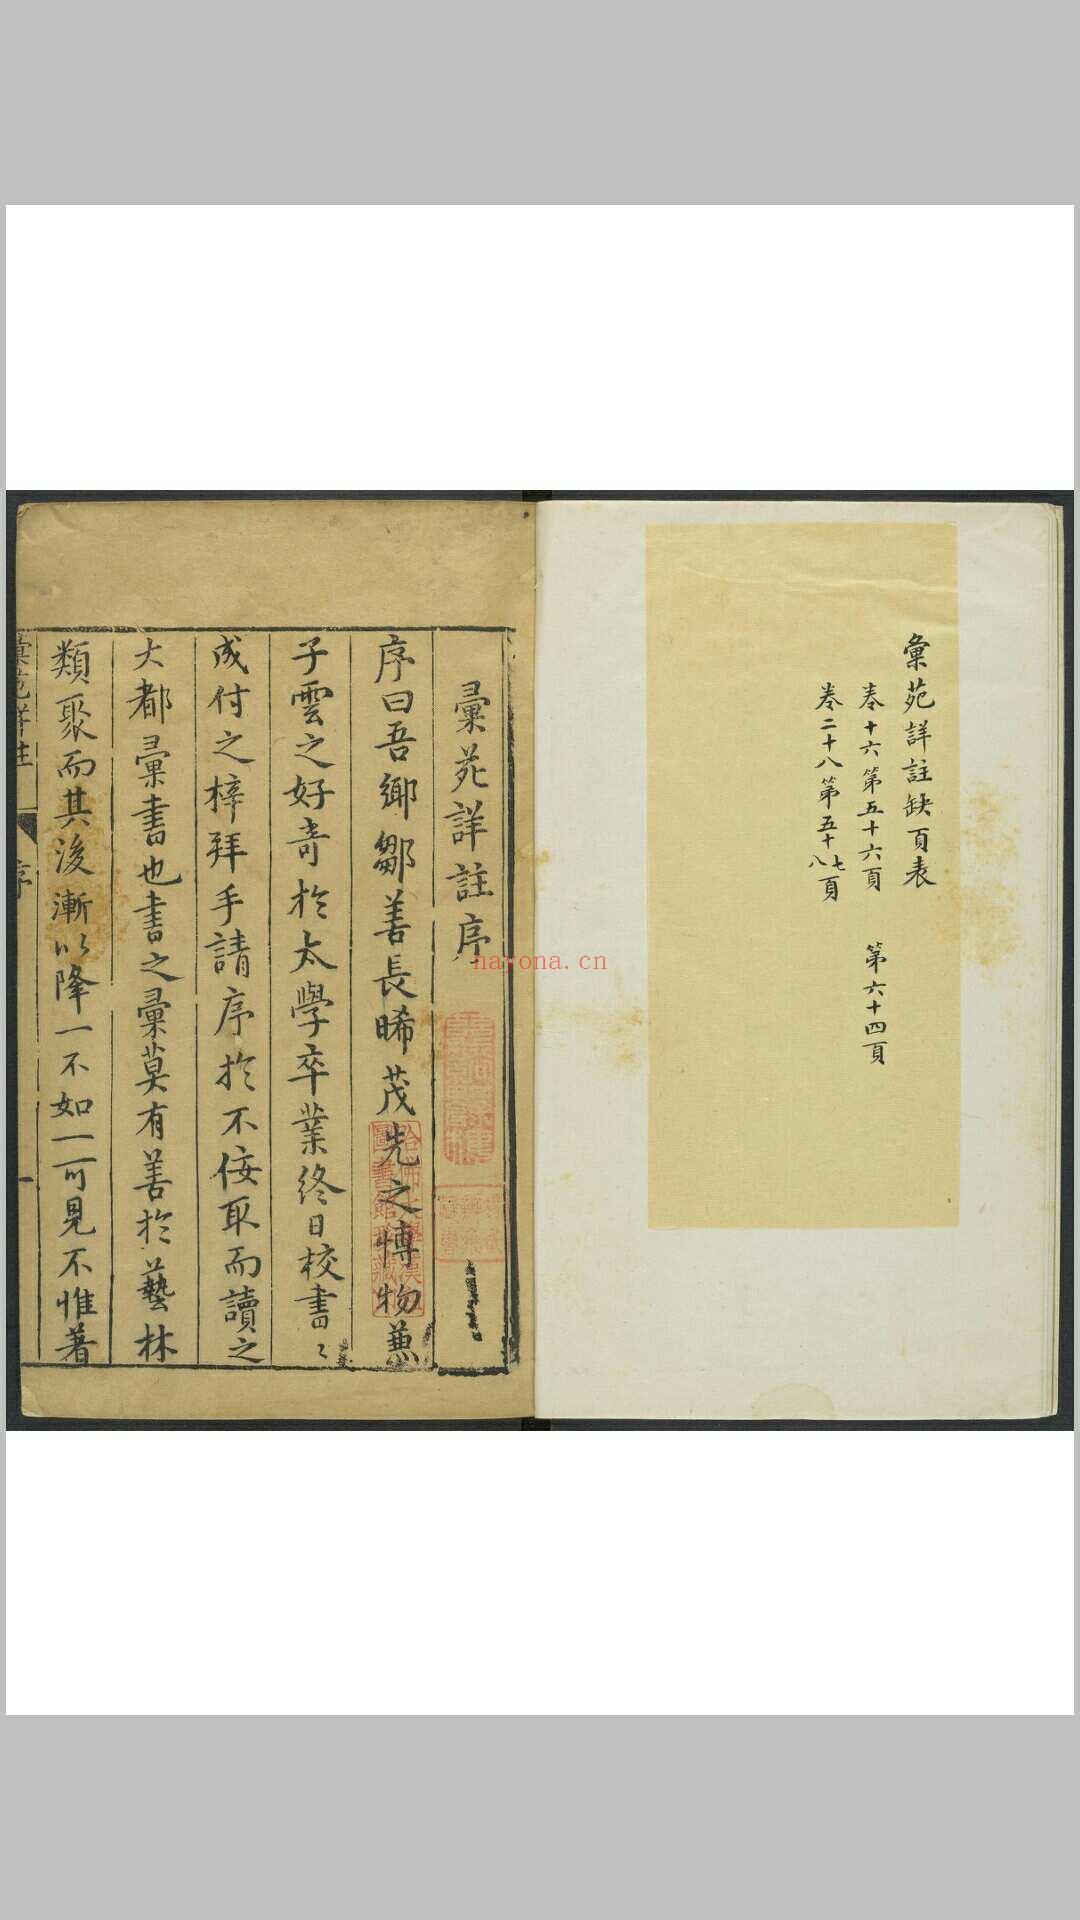 彙苑詳註缺頁表
卷十六第五十六頁 第六十四頁
卷二十八第五十七八頁
彙苑詳註序
序曰吾鄉鄒善長晞茂先之博物兼
子雲之好奇於太學卒業終日校書〻
成付之梓拜手請序於不佞取而讀之
大都彙書也書之彙莫有善於藝林
類聚而其後漸以降一不如一可見不惟著
彙苑詳註
序
一
哈佛大學漢和
圖書館珍藏印
nayona.cn